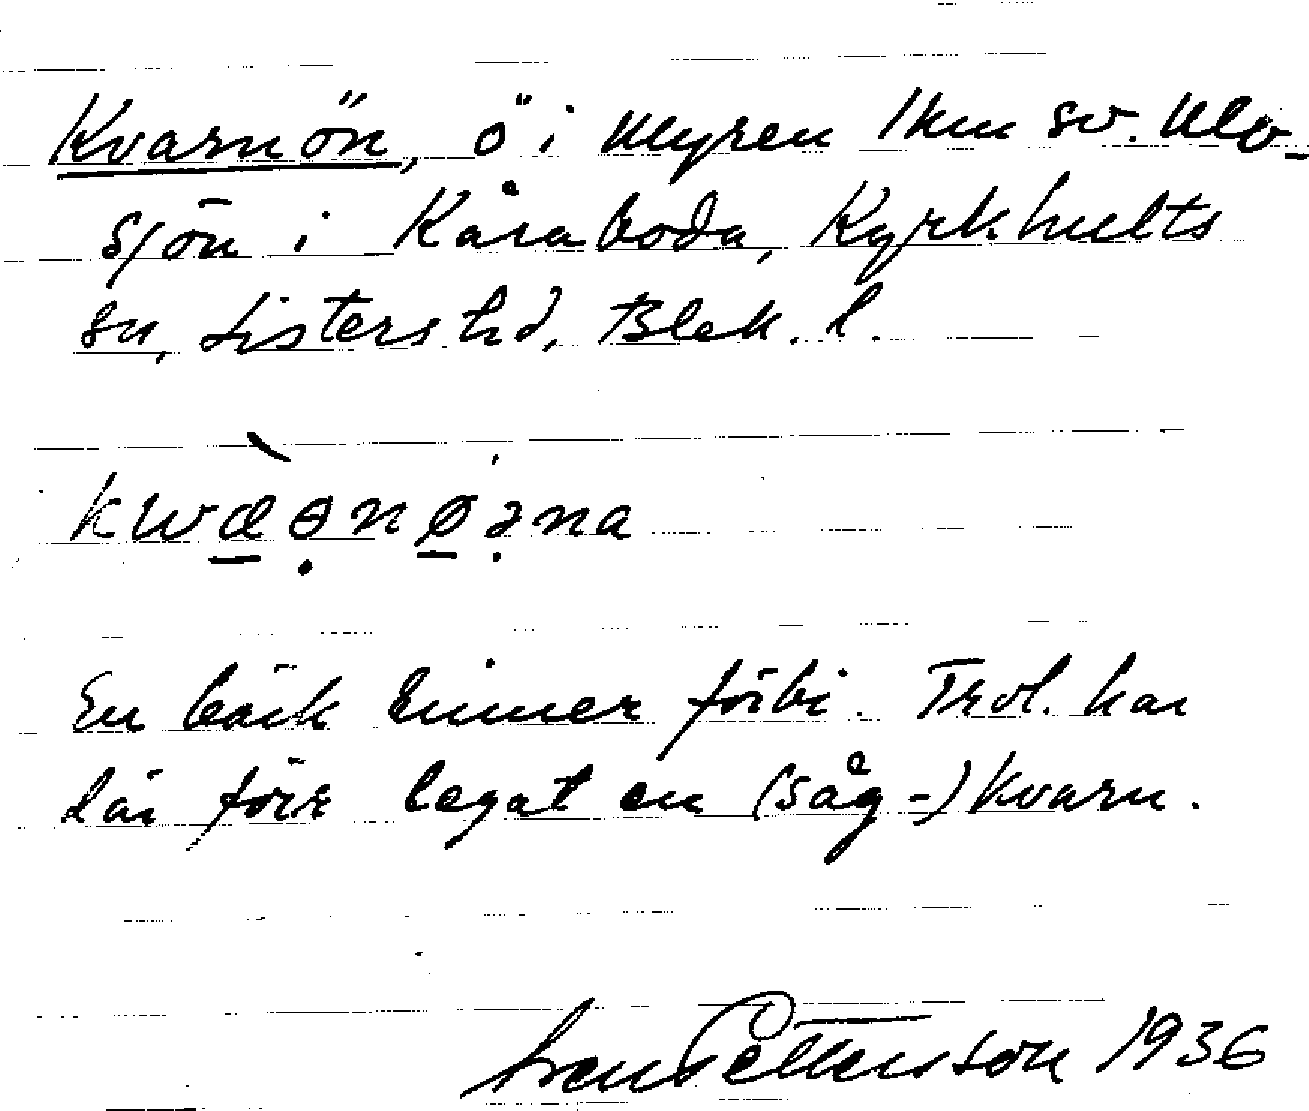 Kvarnön, ö i Myren 1 km sv. Klo-
sjön i Kåraboda, Kyrkhults
sn, Listers hd, Blek. l.
kwæ̀ənǿəna
En bäck rinner förbi. Trol. har
där förr legat en (såg-)kvarn.
Sven Pettersson 1936